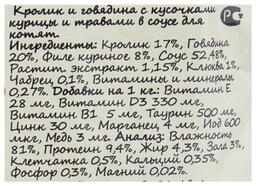 Кролик и говядина с кусочками
курицы и травами в соусе для
котят.
Ингредиенты: Кролик 17%, Говядина
20%, Филе куриное 8%, Соус 52,48%,
Растит. экстракт 1,15%, Клюква 1%,
Чабрец 0,1%, Витамины и минералы
0,27%. Добавки на 1 кг: Витамин Е
28 мг, Витамин D3 330 мг,
Витамин В1 5 мг, Таурин 500 мг,
Цинк 30 мг, Марганец 4 мг, Йод 600
мкг, Медь 3 мг. Анализ: Влажность
81%, Протеин 9,4%, Жир 4,3%, Зола 3%,
Клетчатка 0,5%, Кальций 0,35%,
Фосфор 0,3%, Магний 0,02%.